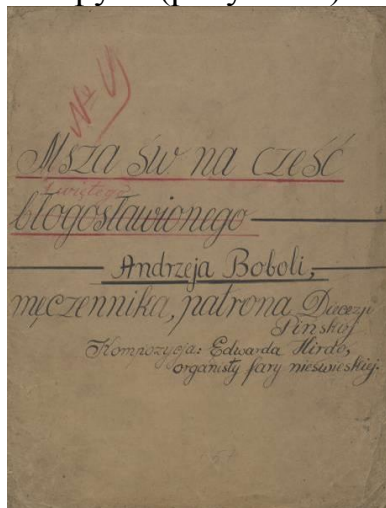 № 4
Msza św na cześć
świętego
błogosławionego
Andrzeja Boboli,
męczennika, patrona Diecezji
Pińskiej
Kompozycja: Edwarda Hirdo,
organisty fary nieświeskiej.